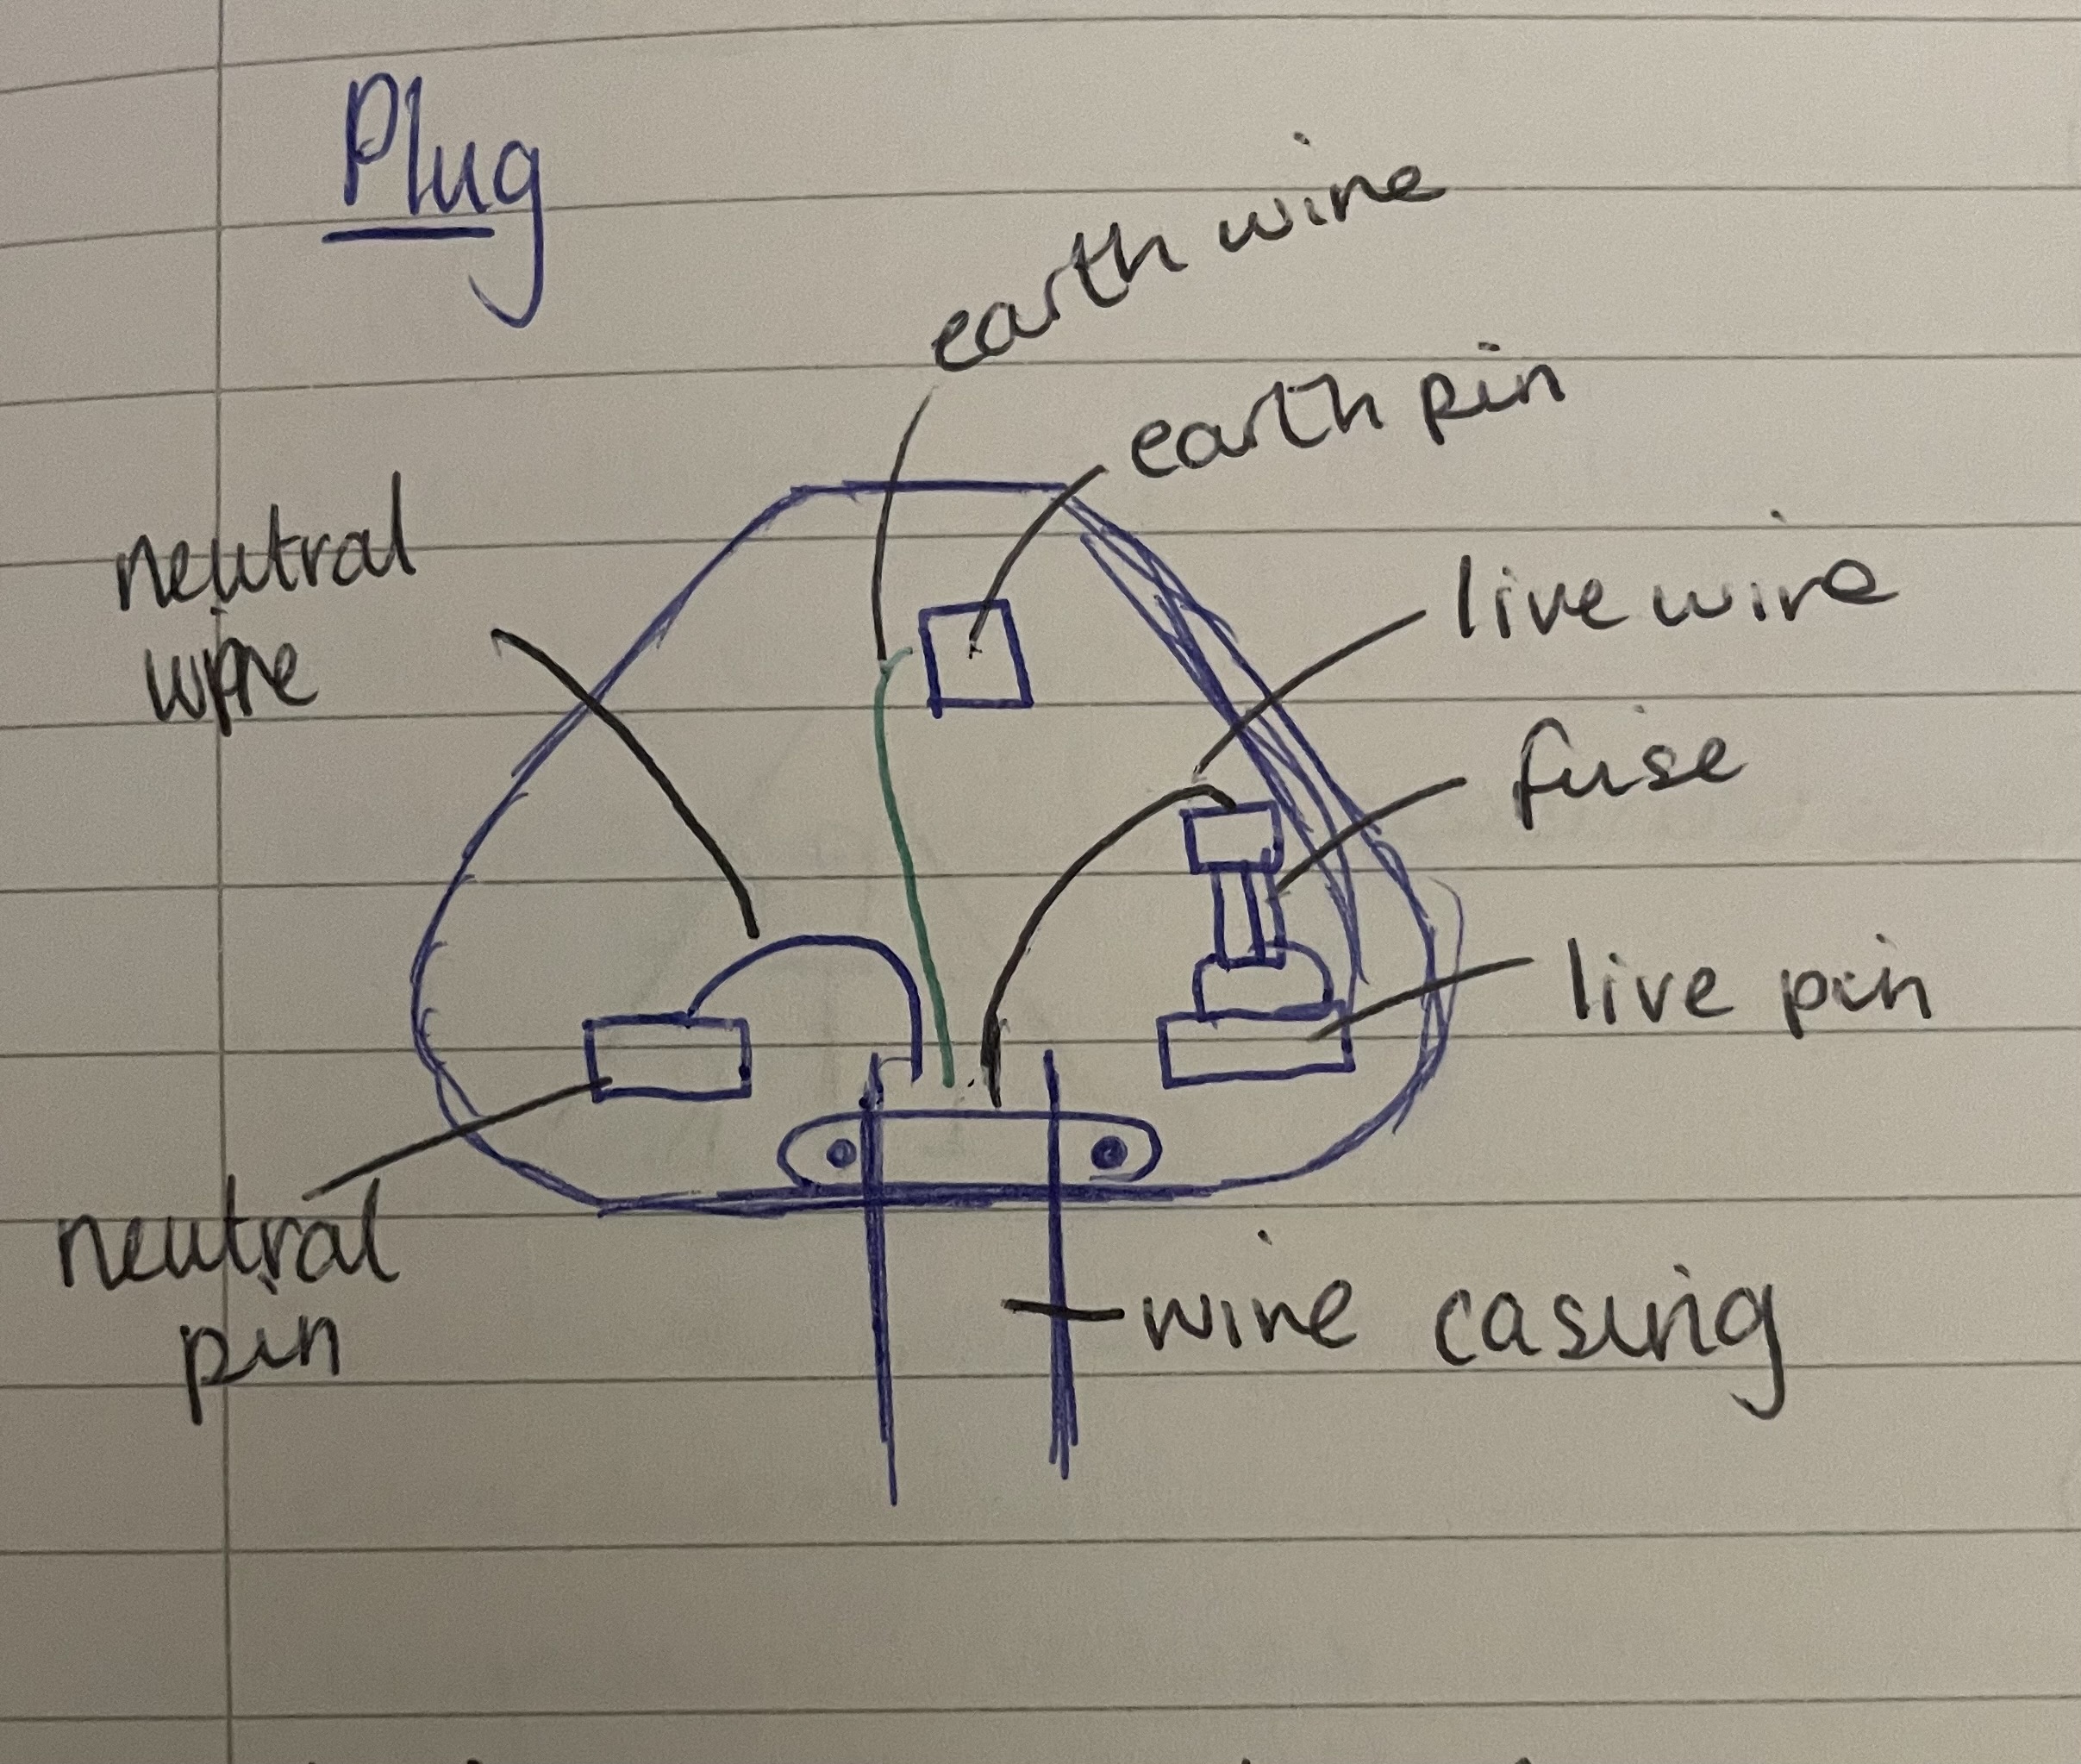 Plug
earth wire
earth pin
neutral
wire
live wire
fuse
live pin
neutral
pin
wire casing